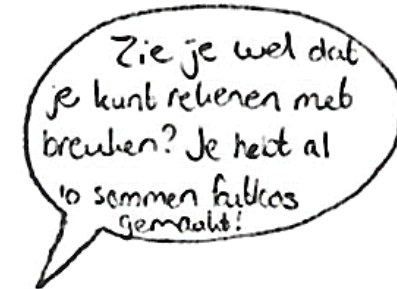 Zie je wel dat
je kunt rekenen met
breuken? Je hebt al
10 sommen foutloos
gemaakt!